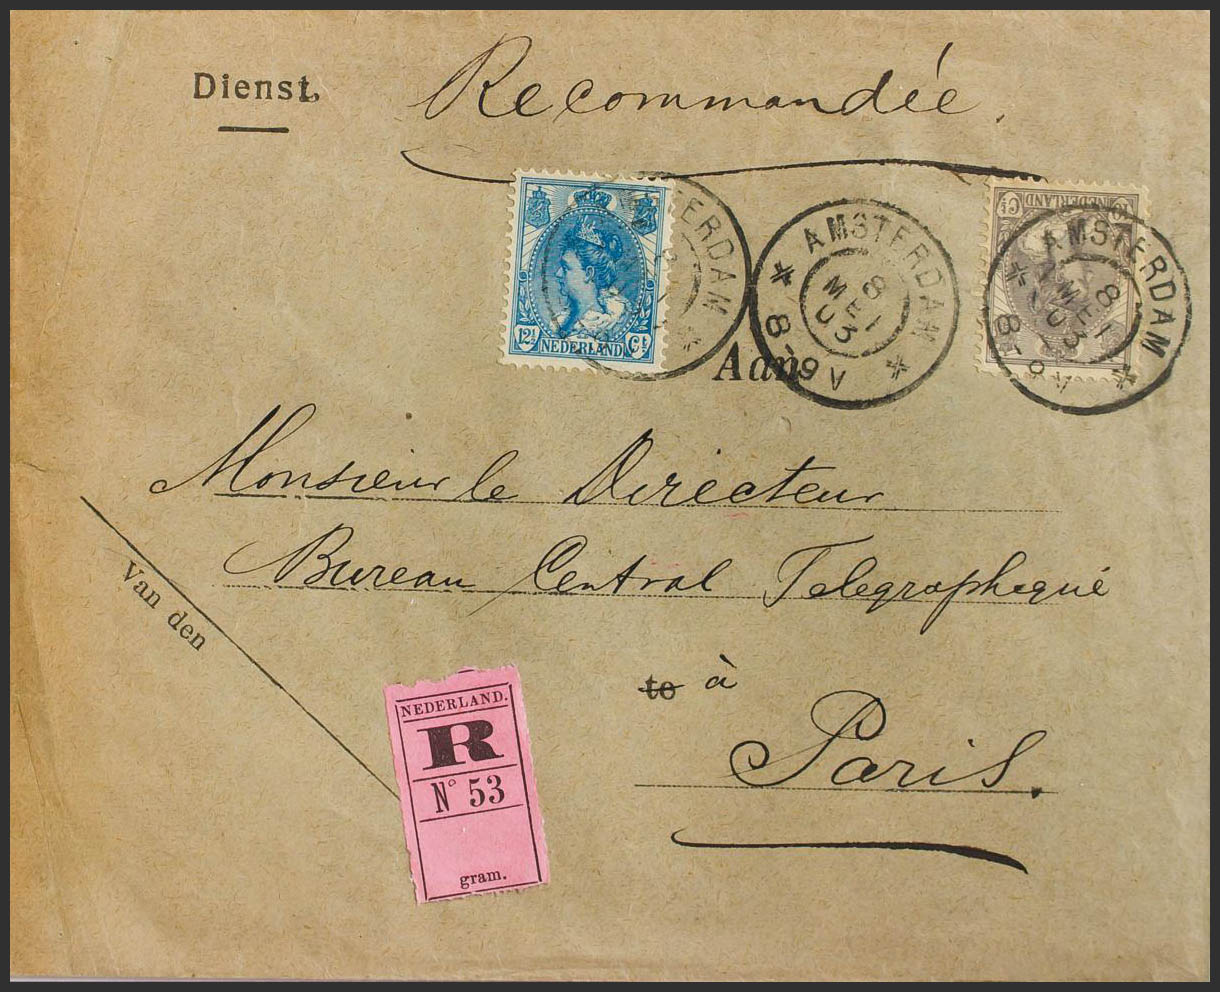 Dienst.
Recommandée.
12½ NEDERLAND Ct
AMSTERDAM
AMSTERDAM
8 MEI 03
8-9V
10 NEDERLAND Ct
AMSTERDAM
8 MEI 03
8-9V
Aan
Monsieur le Directeur
Bureau Central Telegraphequé
Van den
te à
Paris.
NEDERLAND.
R
N° 53
gram.